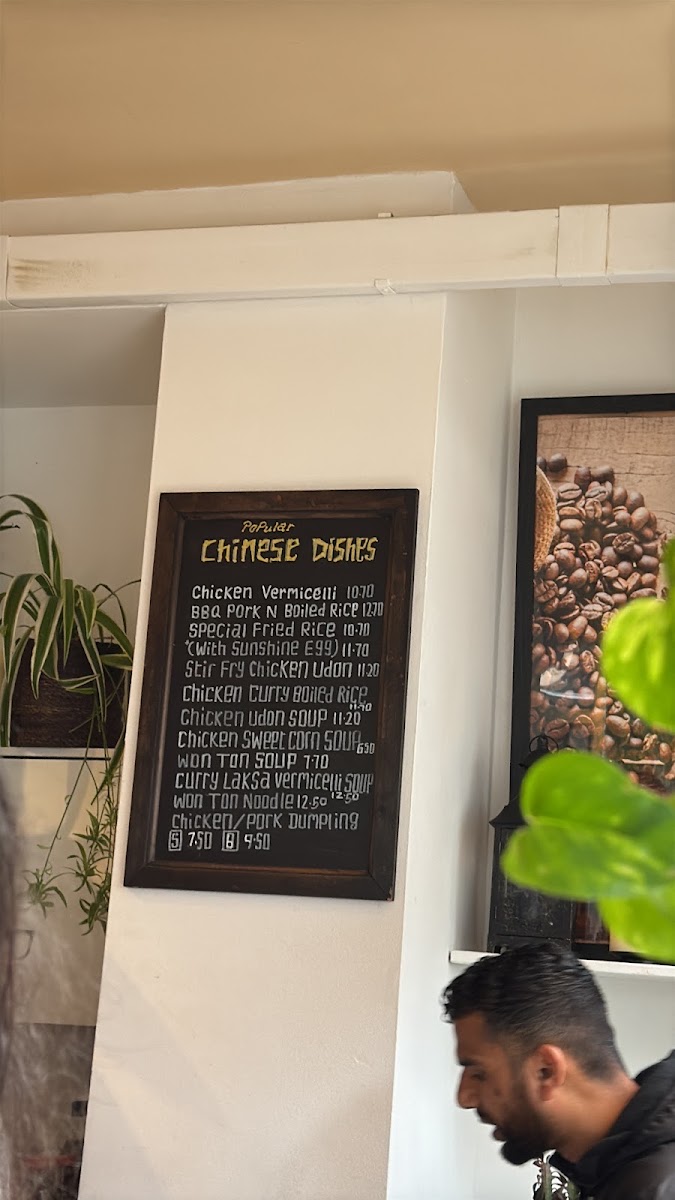 Popular
Chinese Dishes
Chicken Vermicelli 10.70
BBQ Pork N Boiled Rice 12.70
Special Fried Rice 10.70
*(With Sunshine Egg) 11.70
Stir Fry Chicken Udon 11.20
Chicken Curry Boiled Rice
11.70
Chicken Udon Soup 11.20
Chicken Sweet Corn Soup
6.50
Won Ton Soup 7.70
Curry Laksa Vermicelli Soup
12.50
Won Ton Noodle 12.50
Chicken/Pork Dumpling
5 7.50 8 9.50